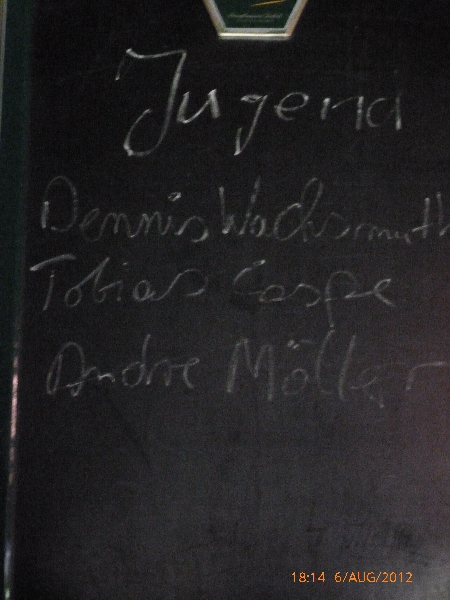 Jugend
Dennis Wachsmuth
Tobias Caspe
Andre Möller
18:14 6/AUG/2012